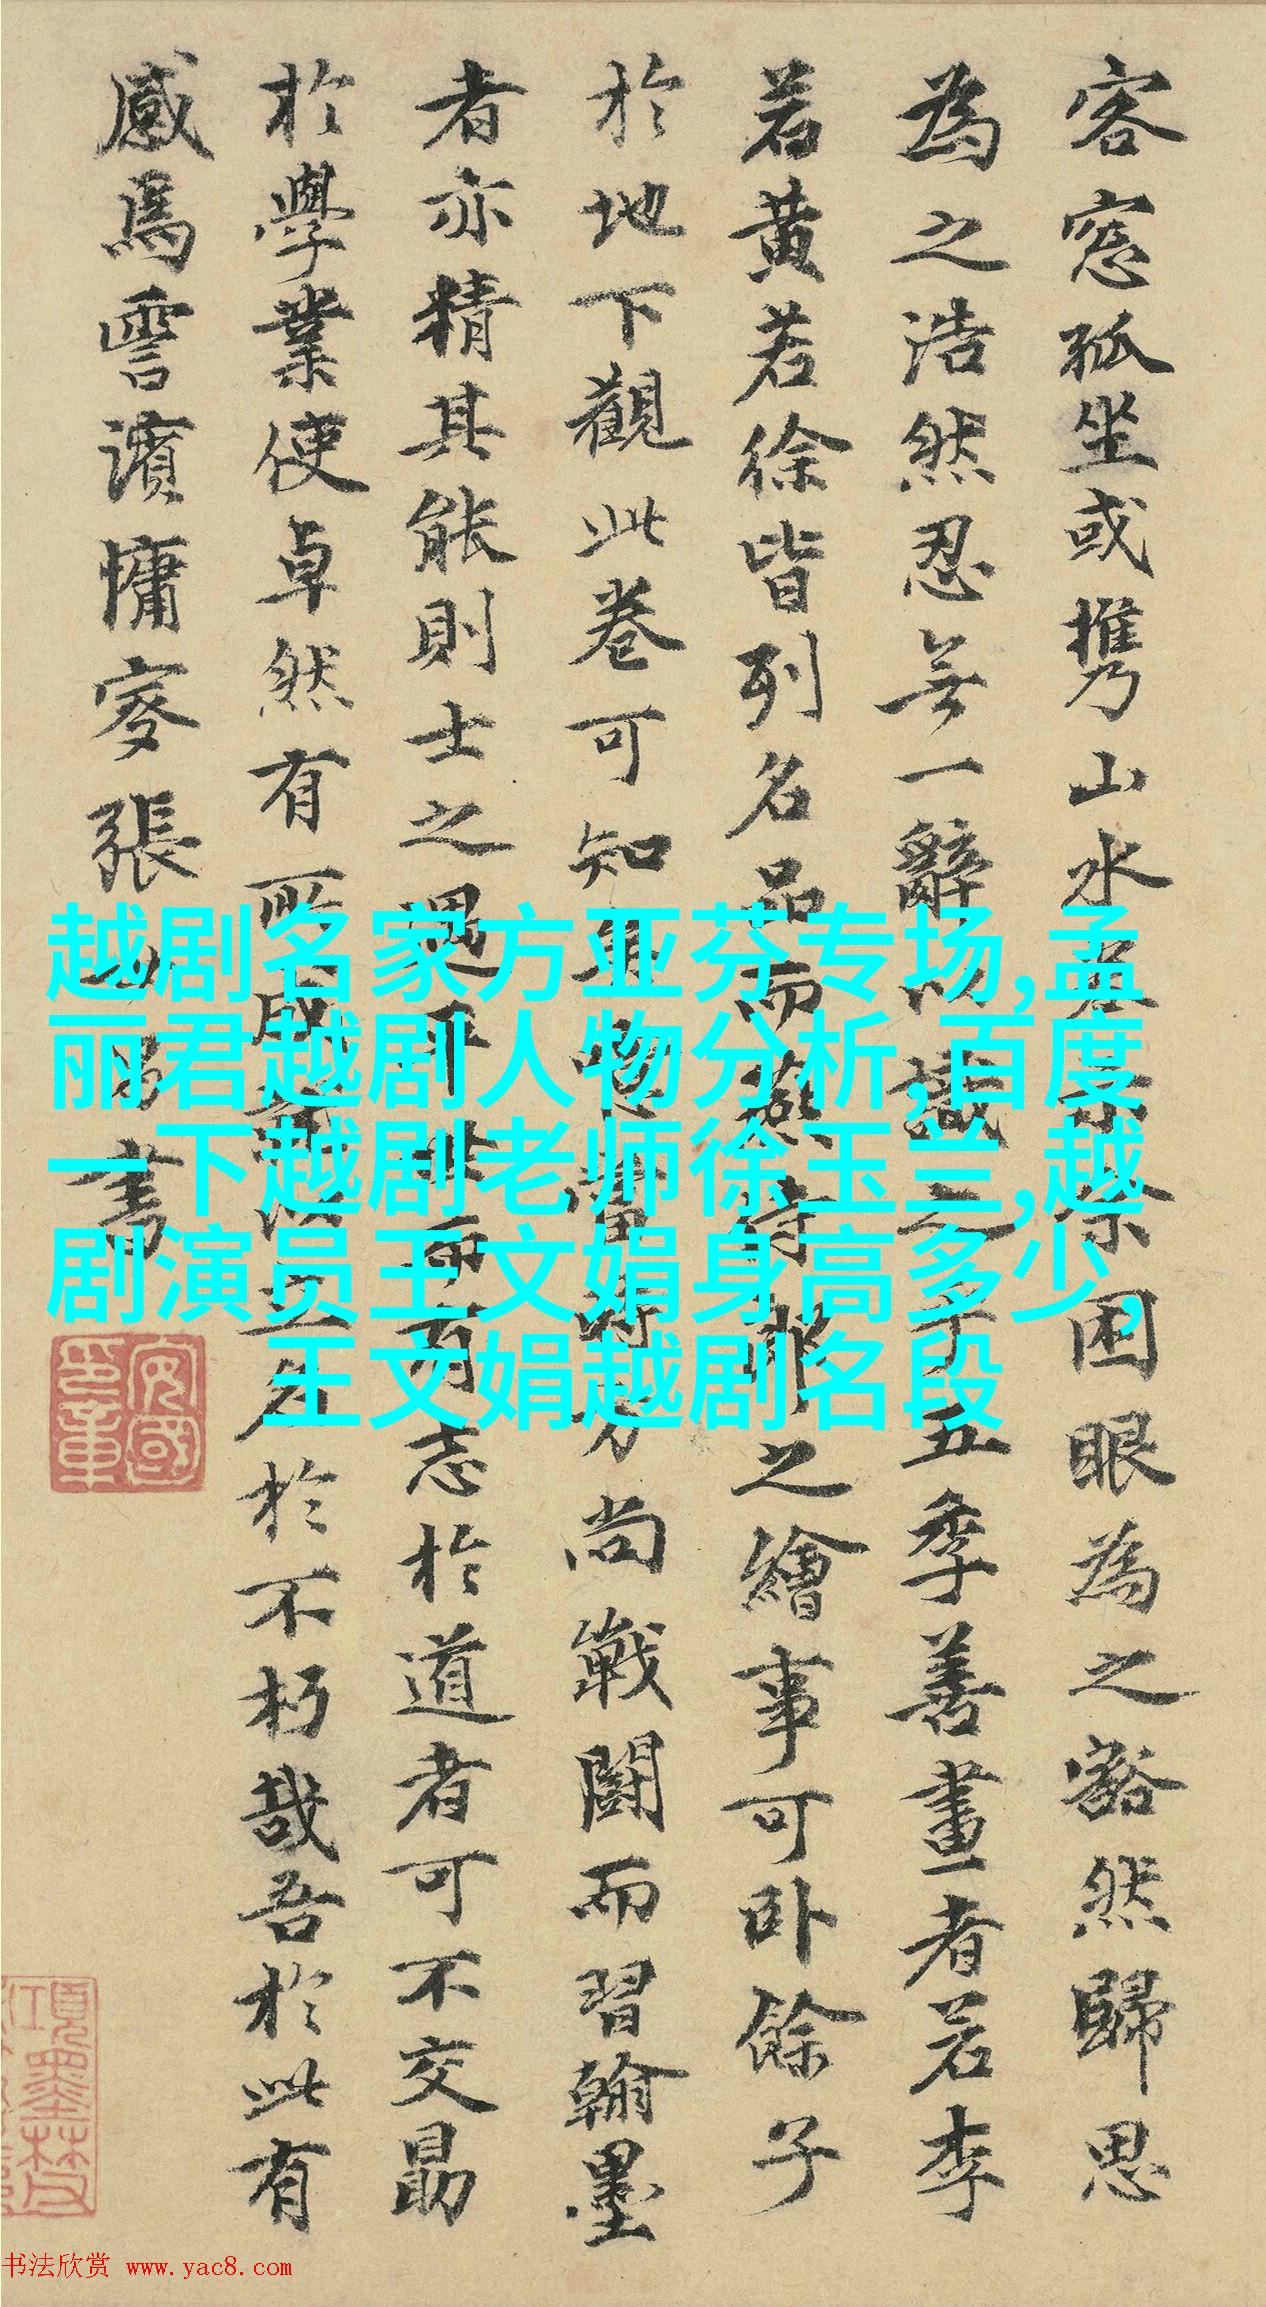 客窓孤坐或携山水卷
困眼為之豁然歸思
為之浩然忍無一辭以識之
五季善畫者若李
若黄若徐皆列名品而燕
之繪事可卧餘子
於地下觀此卷可知其
方尚戰鬭而習翰墨
者亦精其能則士之遇
而有志於道者可不交勗
於學業使卓然有所成
於不朽哉吾於此有
感焉雪濱慵叟張
書
越剧名家方亚芬专场,孟
丽君越剧人物分析,百度
一下越剧老师徐玉兰,越
剧演员王文娟身高多少,
王文娟越剧名段
书法欣赏 www.yac8.com